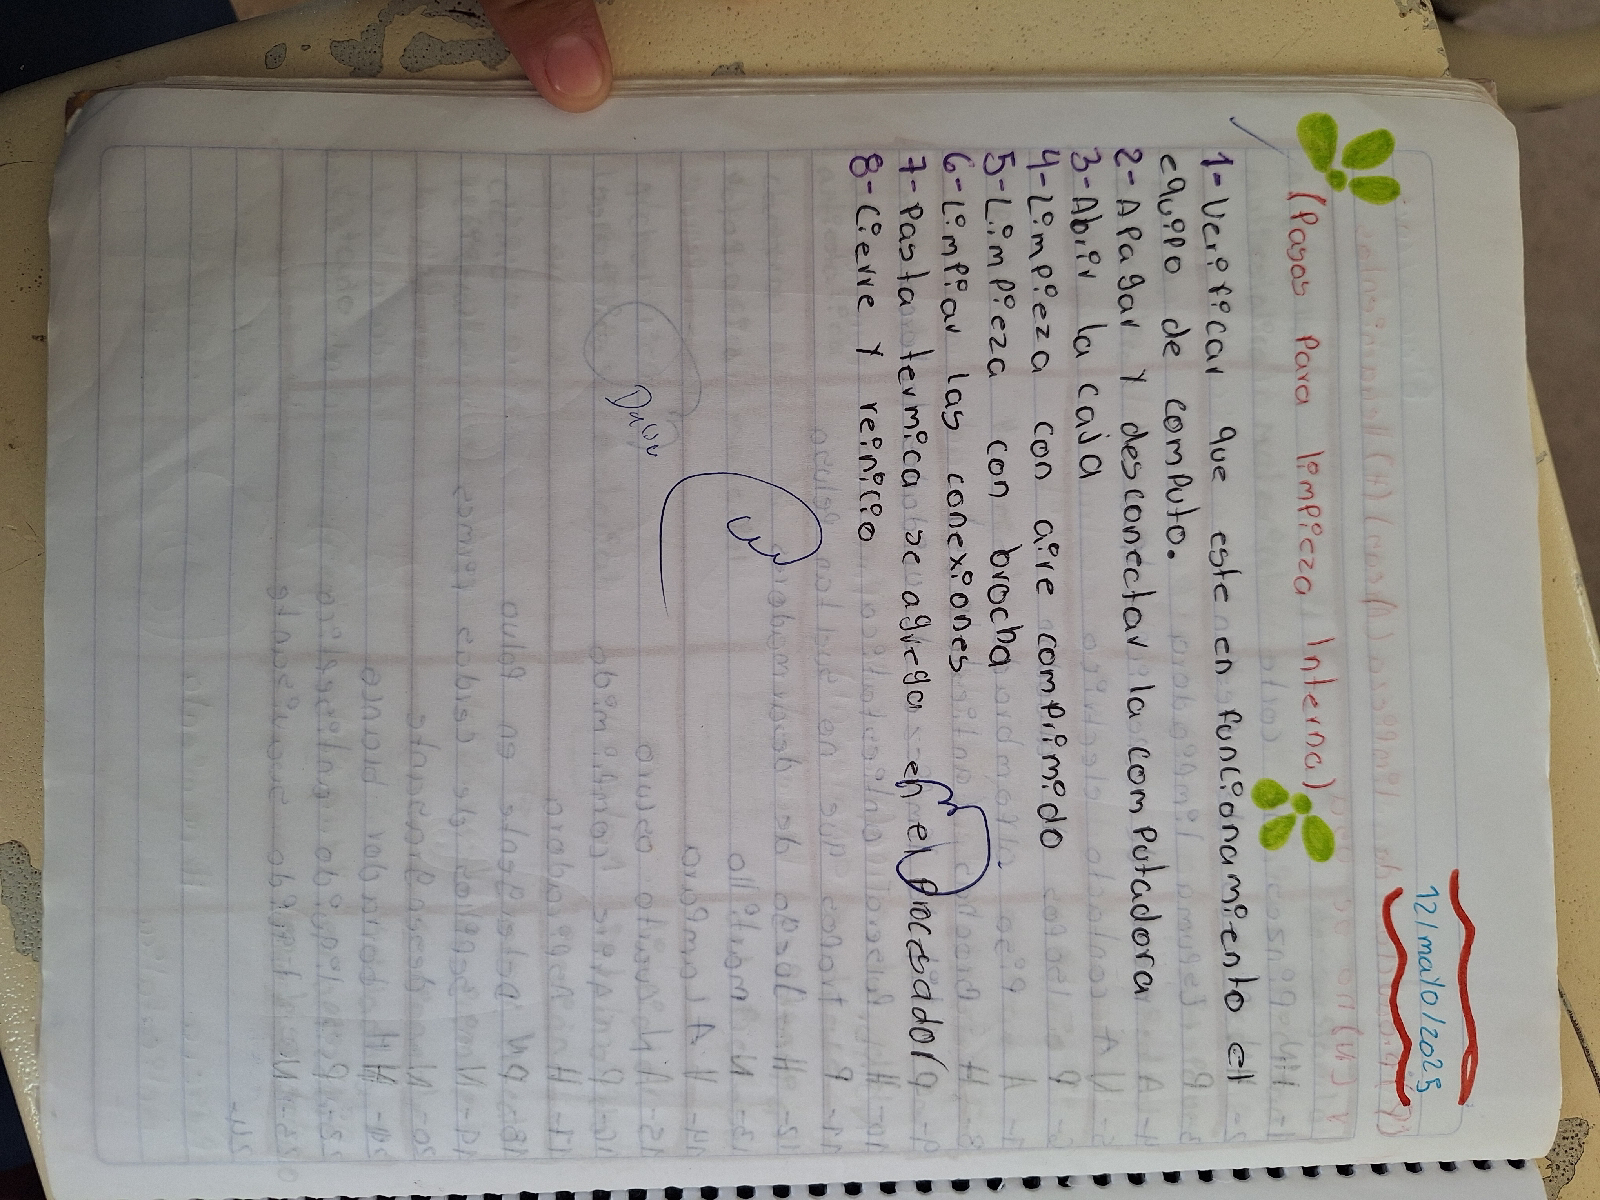 12/mayo/2025
(Pasos para limpieza Interna)
1-Verificar que este en funcionamiento el
equipo de computo.
2-Apagar y desconectar la computadora
3-Abrir la caja
4-Limpieza con aire comprimido
5-Limpieza con brocha
6-Limpiar las conexiones
7-Pasta termica se agrega en el procesador
8-Cierre y reinicio